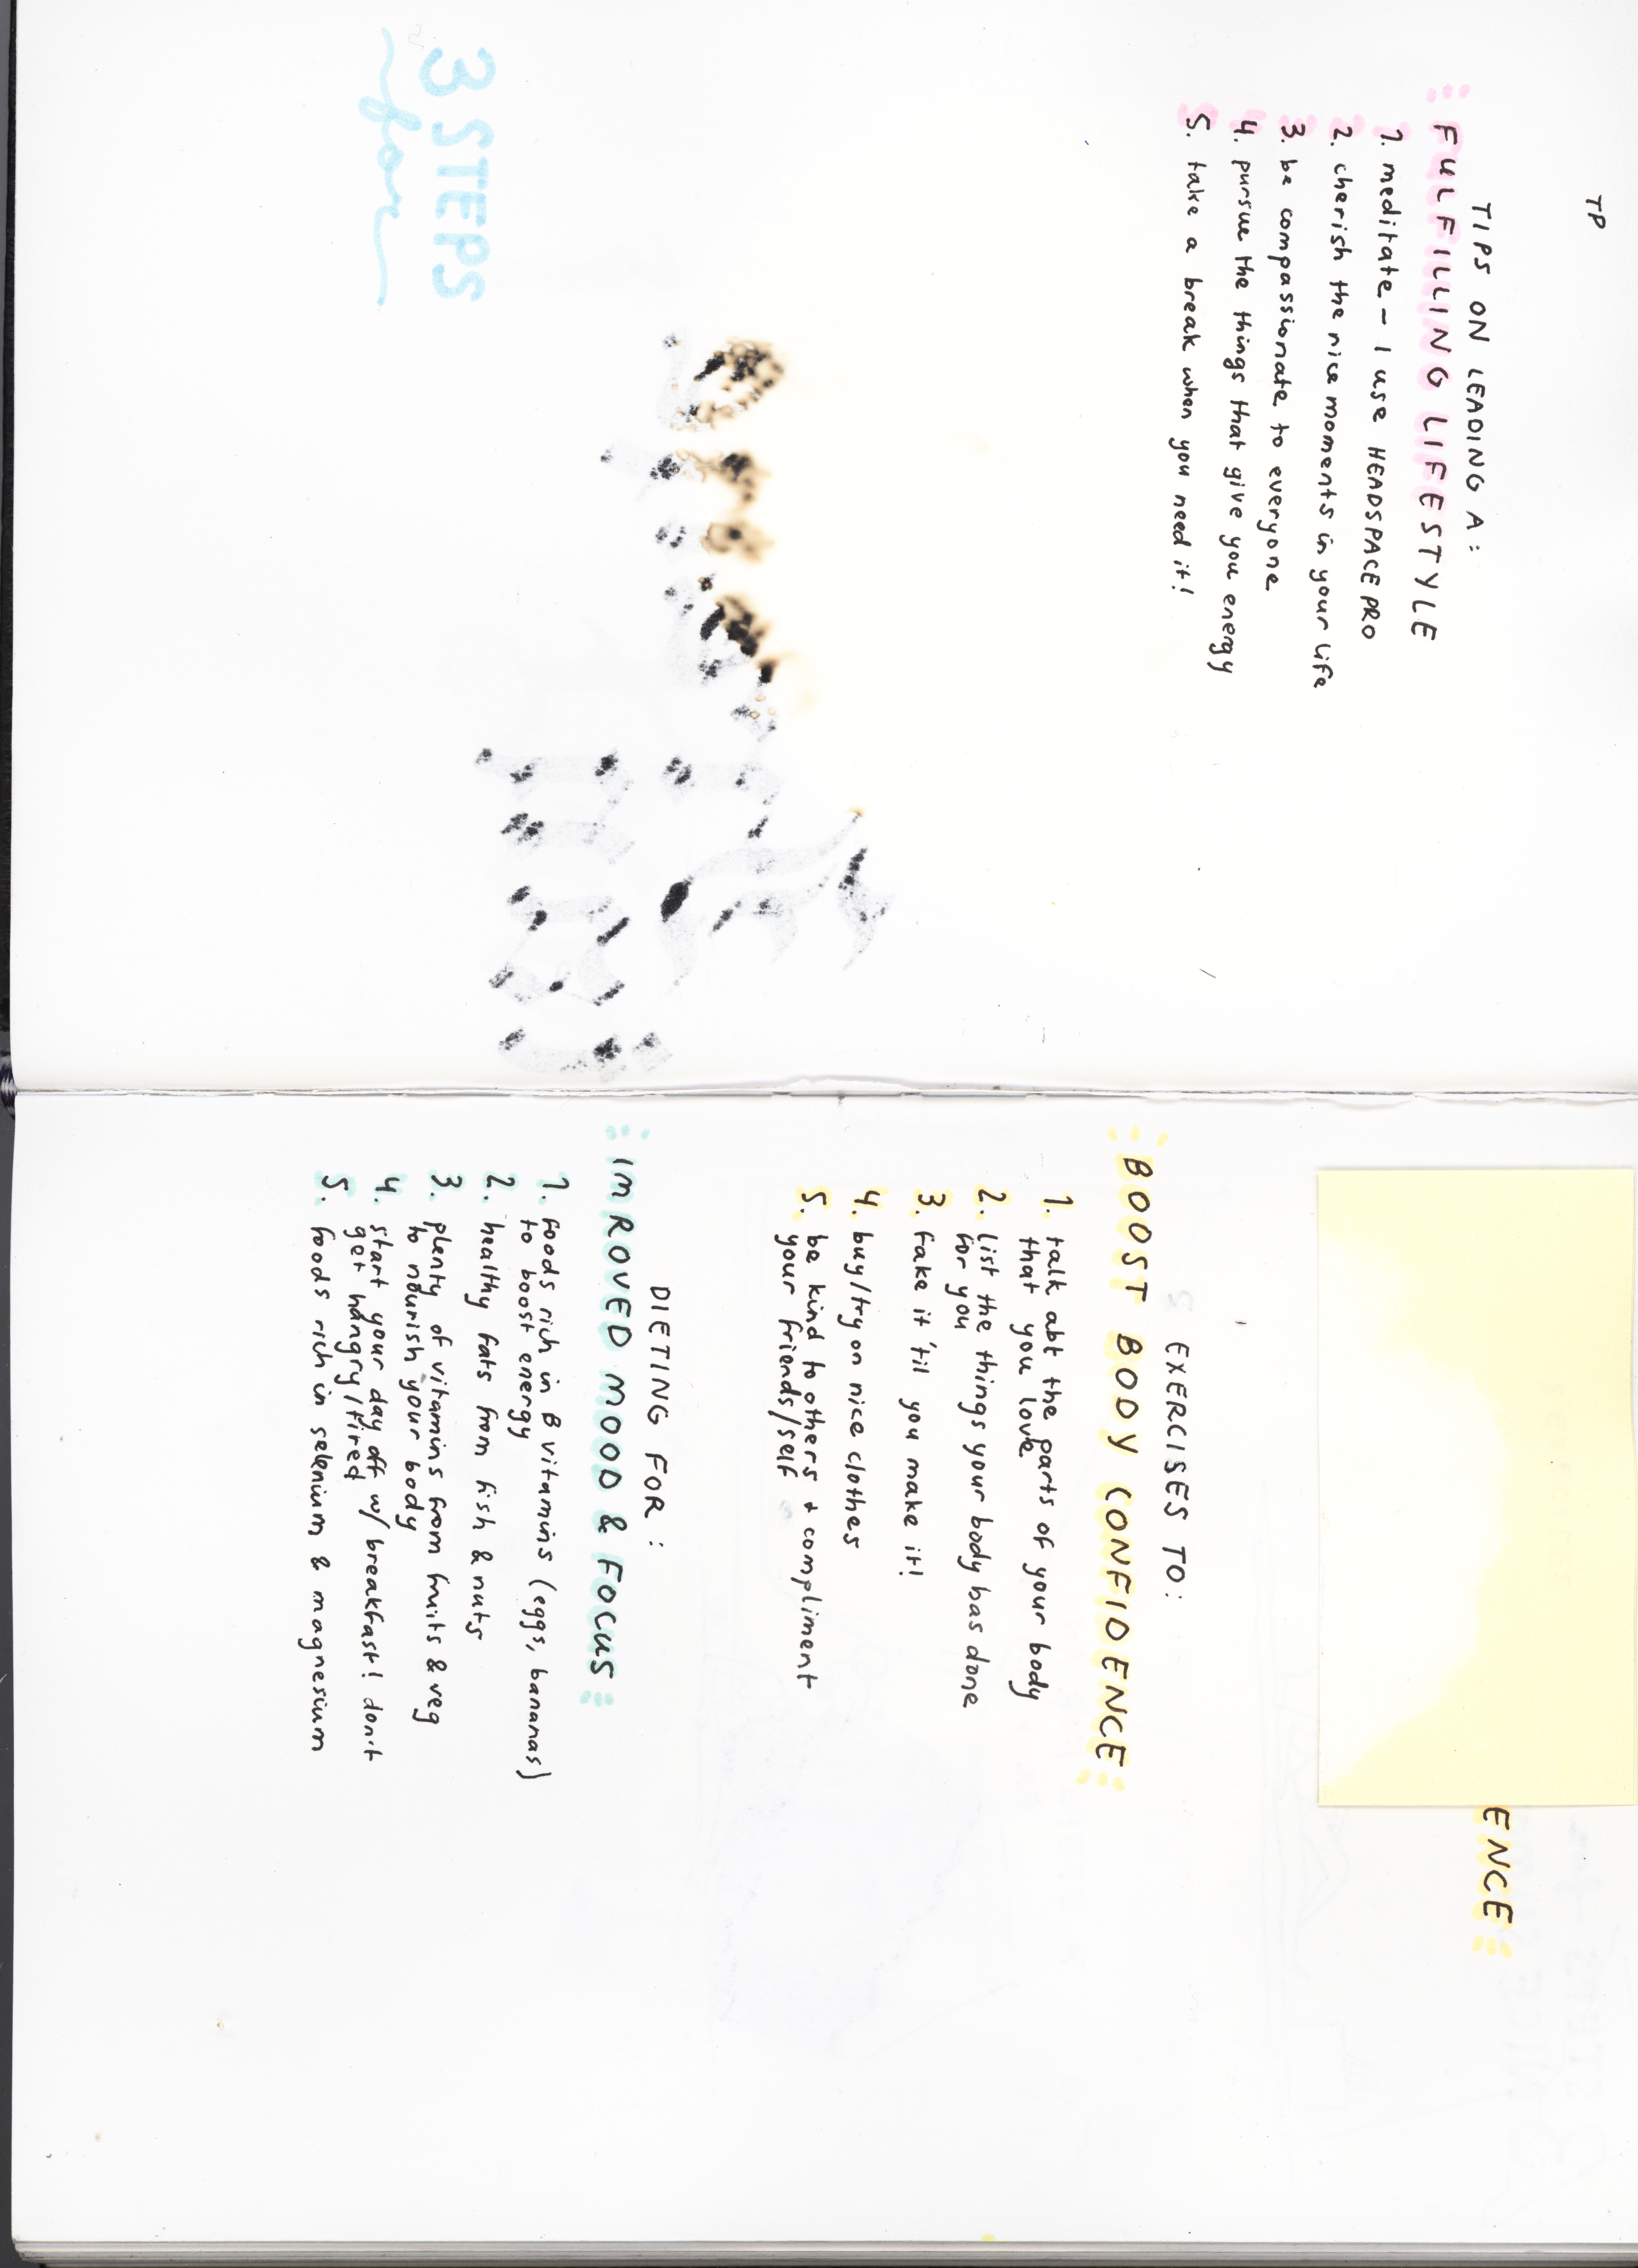 TP
TIPS ON LEADING A:
FULFILLING LIFESTYLE
1. meditate - I use HEADSPACE PRO
2. cherish the nice moments in your life
3. be compassionate to everyone
4. pursue the things that give you energy
5. take a break when you need it!
3 STEPS
for
ENCE
EXERCISES TO:
BOOST BODY CONFIDENCE
1. talk abt the parts of your body
that you love
2. list the things your body has done
for you
3. fake it 'til you make it!
4. buy/try on nice clothes
5. be kind to others + compliment
your friends/self
DIETING FOR:
IMROVED MOOD & FOCUS
1. foods rich in B vitamins (eggs, bananas)
to boost energy
2. healthy fats from fish & nuts
3. plenty of vitamins from fruits & veg
to nourish your body
4. start your day off w/ breakfast! don't
get hangry/tired
5. foods rich in selenium & magnesium